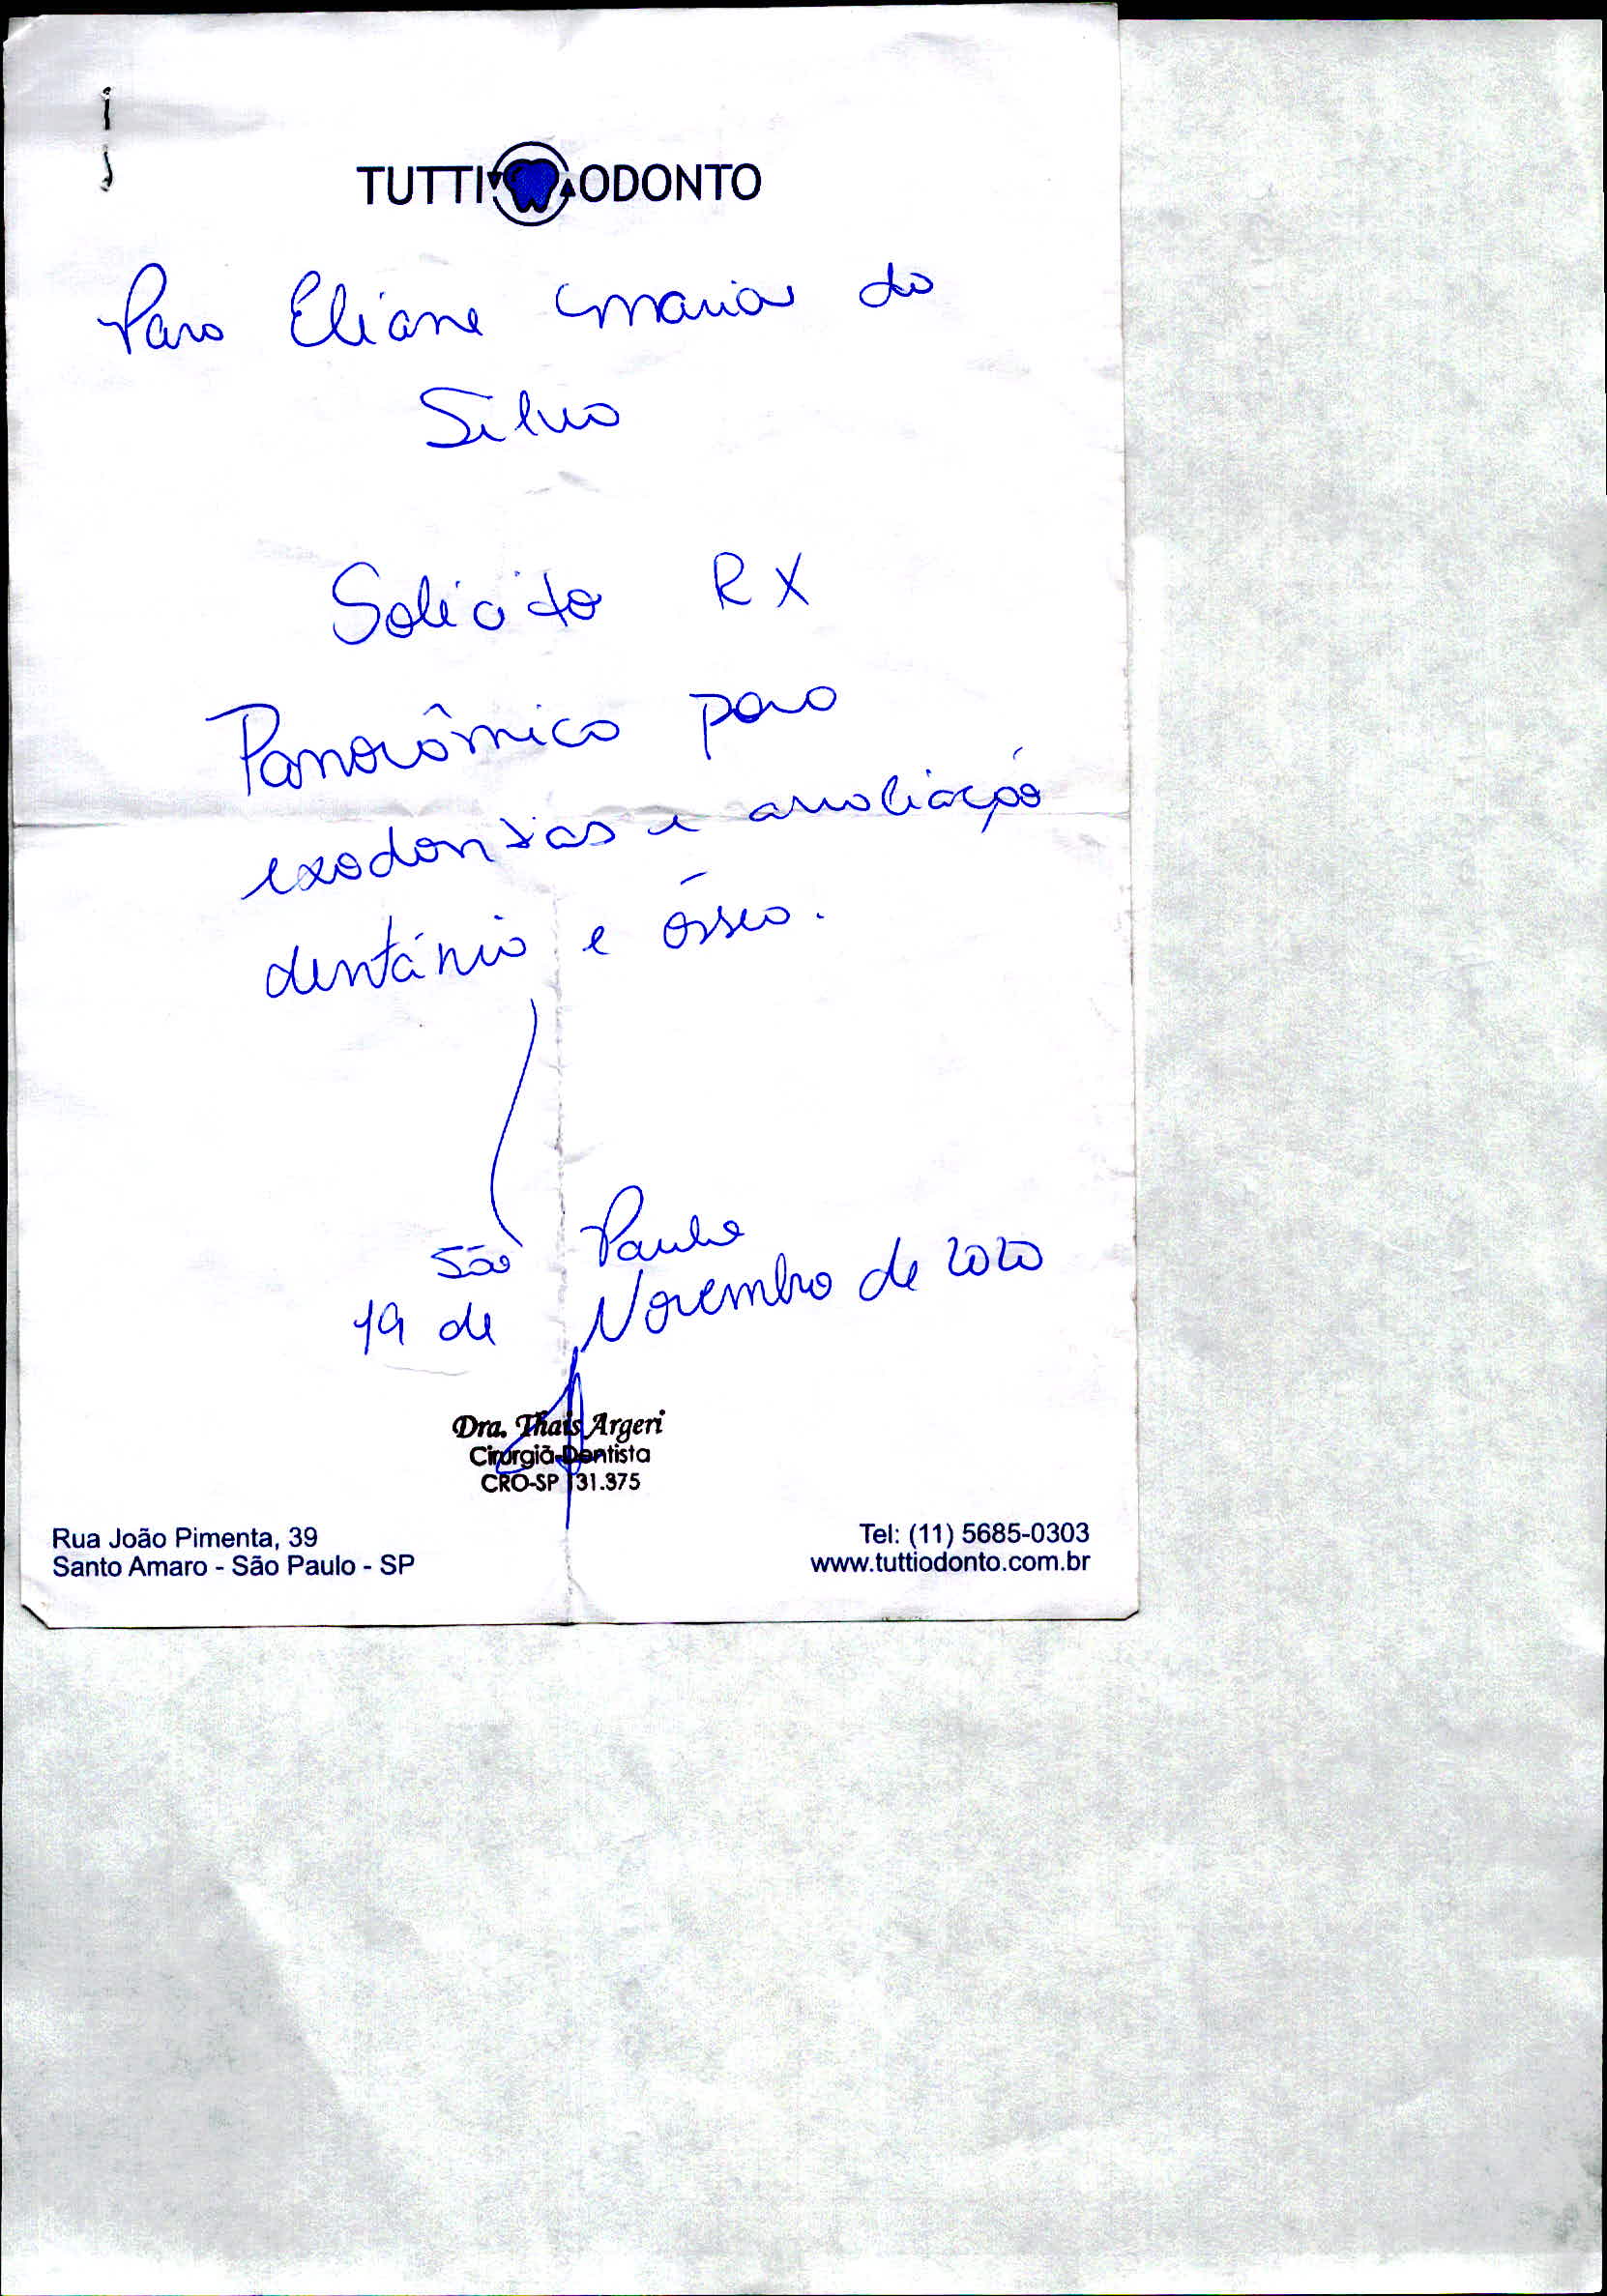 TUTTI ODONTO
Para Eliane Maria da
Silva
Solicito RX
Panorâmico para
exodontias e avaliação
dentária e óssea.
São Paulo
19 de Novembro de 2020
Dra. Thais Argeri
Cirurgiã-Dentista
CRO-SP 131.375
Rua João Pimenta, 39
Santo Amaro - São Paulo - SP
Tel: (11) 5685-0303
www.tuttiodonto.com.br